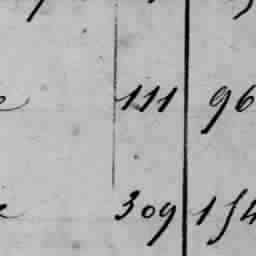 111 96
309 154